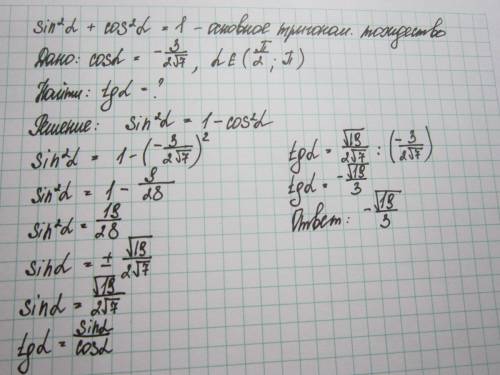 sin²α + cos²α = 1 - основное тригоном. тождество
Дано: cosα = -3/(2√7), α ∈ (π/2; π)
Найти: tgα = ?
Решение: sin²α = 1 - cos²α
sin²α = 1 - (-3/(2√7))²
sin²α = 1 - 9/28
sin²α = 19/28
sinα = ± √19/(2√7)
sinα = √19/(2√7)
tgα = sinα/cosα
tgα = √19/(2√7) : (-3/(2√7))
tgα = -√19/3
Ответ: -√19/3